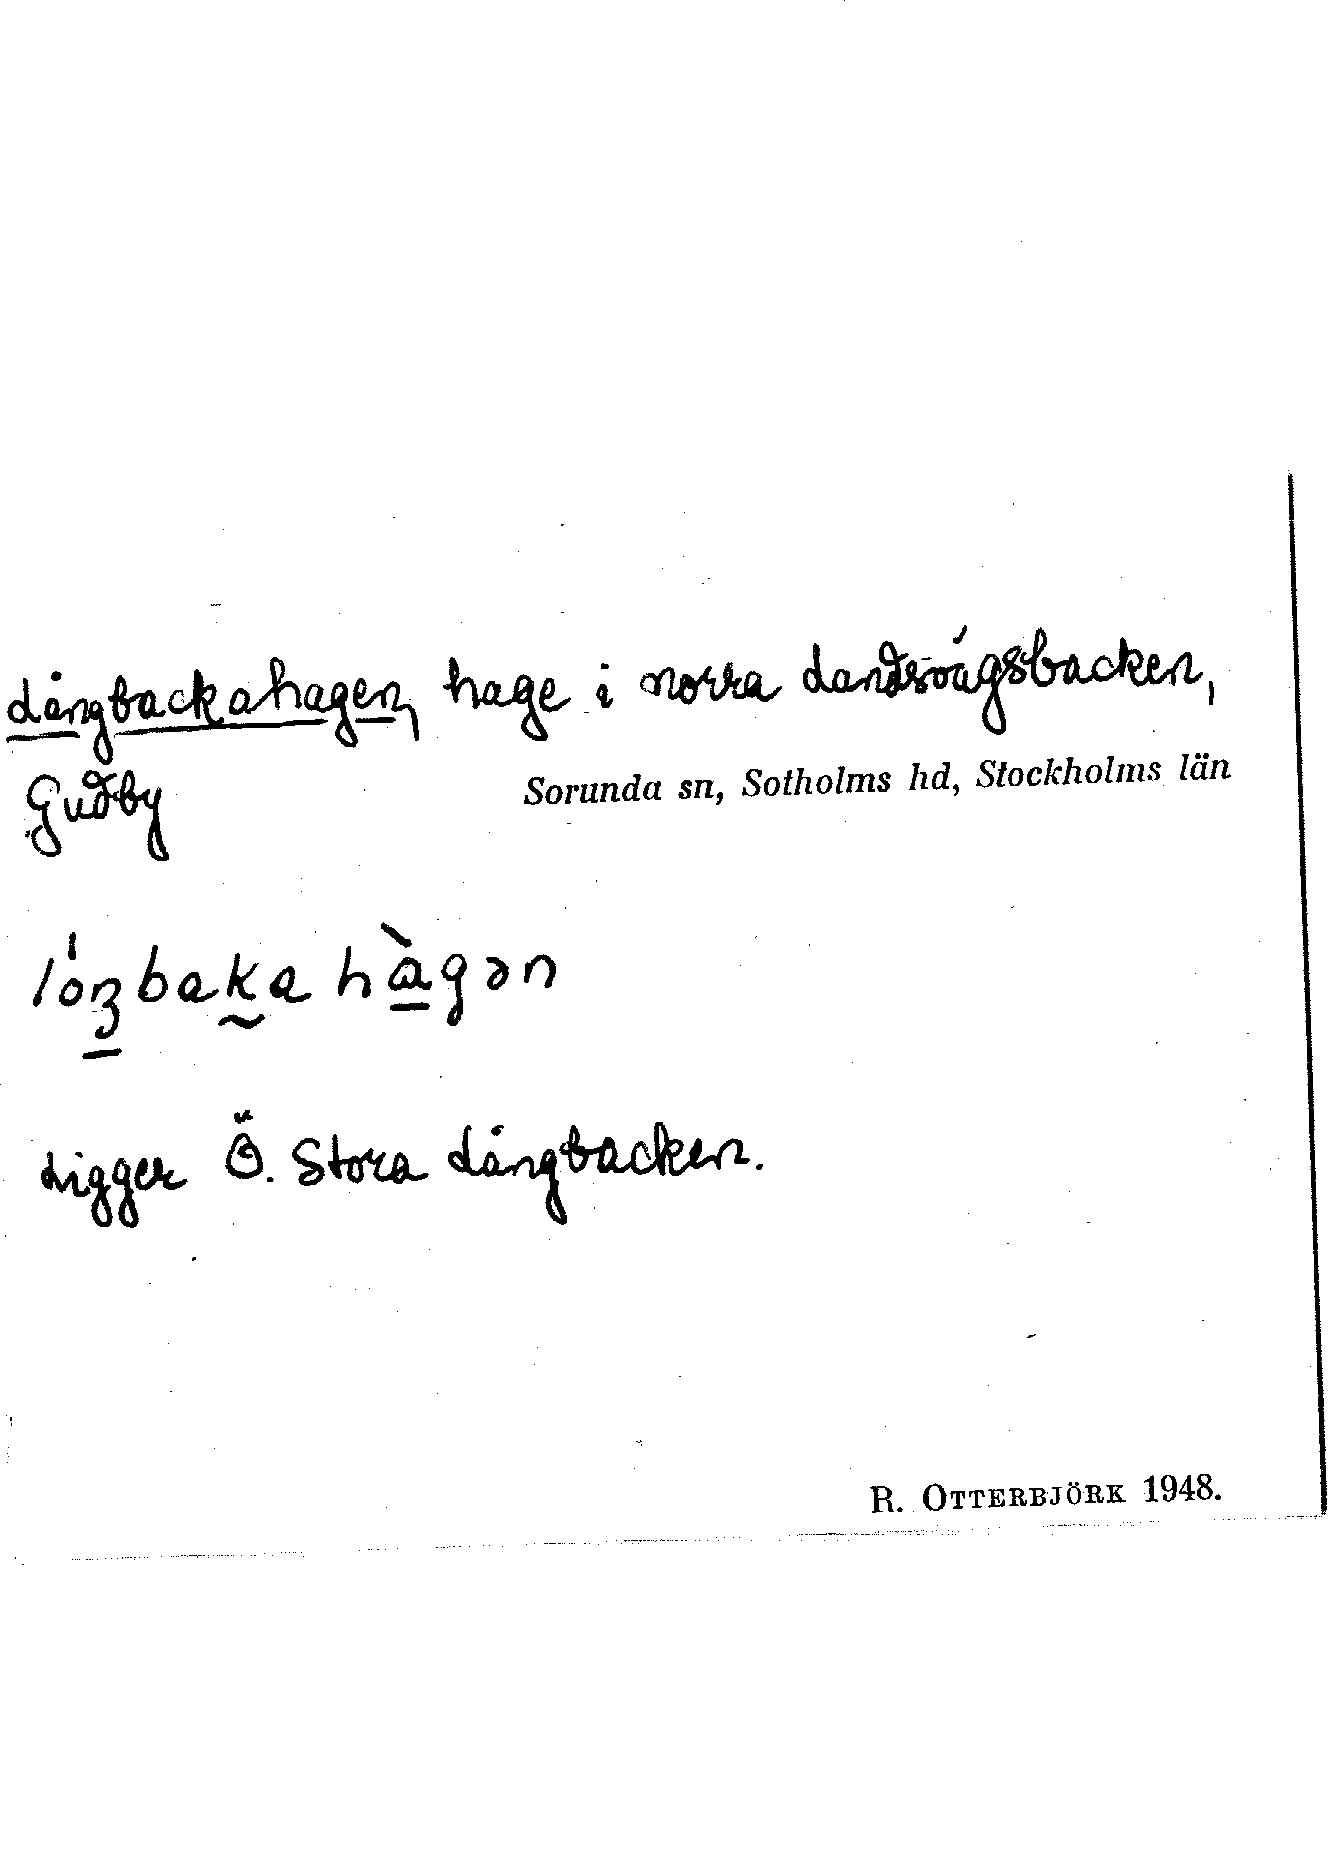 Långbackahagen, hage i norra Landsvägsbacken,
Gudby
Sorunda sn, Sotholms hd, Stockholms län
Ligger Ö. Stora Långbacken.
R. OTTERBJÖRK 1948.